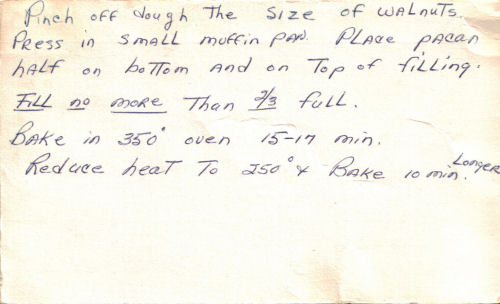 Pinch off dough The Size of walnuts.
Press in small muffin pan. Place pacan
half on boTTom and on Top of filling.
Fill no more Than 2/3 full.
Bake in 350° oven 15-17 min.
Reduce heat To 250° & Bake 10 min. Longer